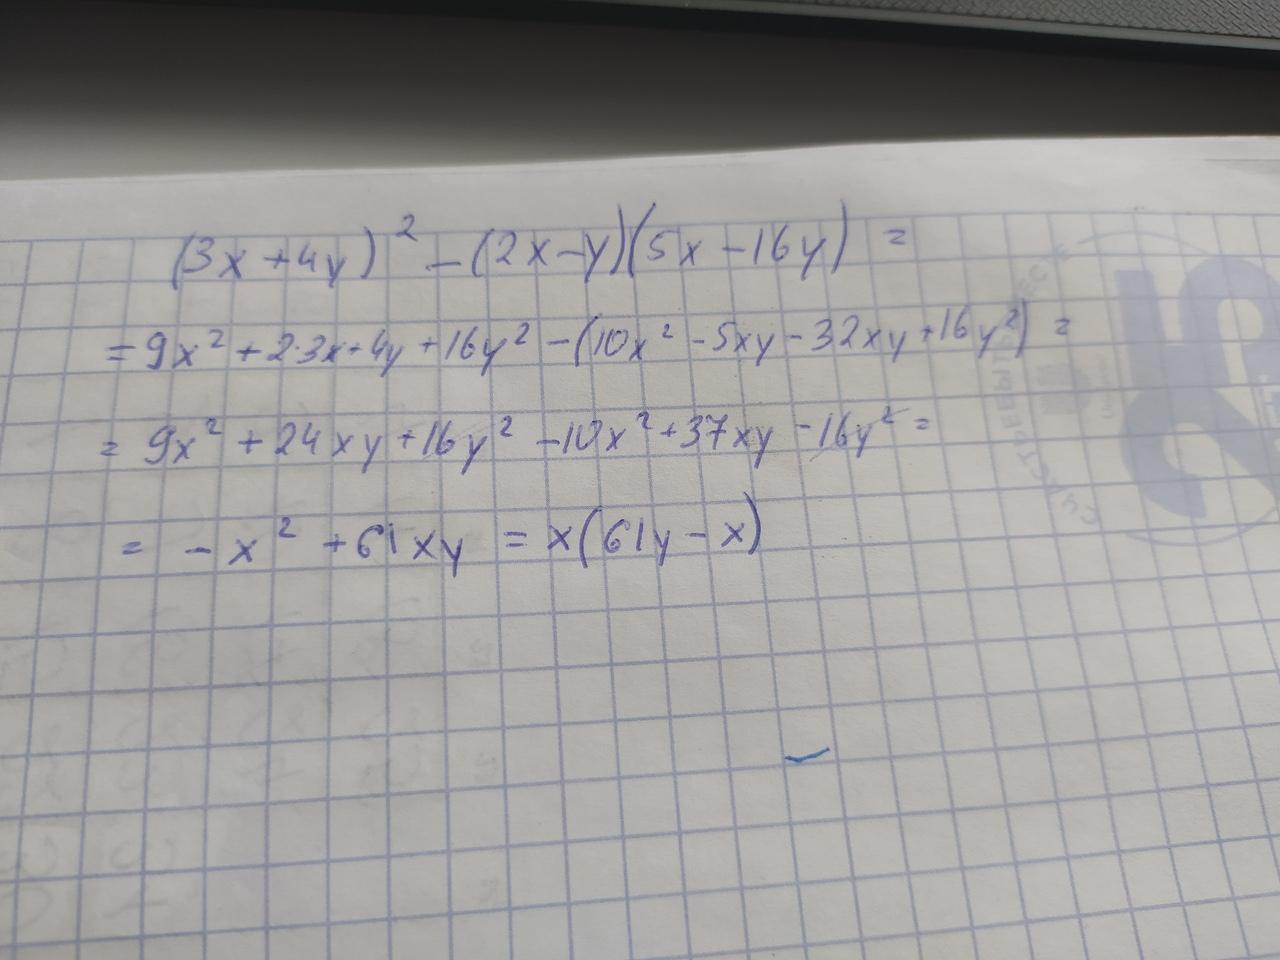 (3x+4y)² - (2x-y)(5x-16y) =
= 9x² + 2·3x+4y + 16y² - (10x² - 5xy - 32xy + 16y²) =
= 9x² + 24xy + 16y² - 10x² + 37xy - 16y² =
= - x² + 61xy = x(61y - x)